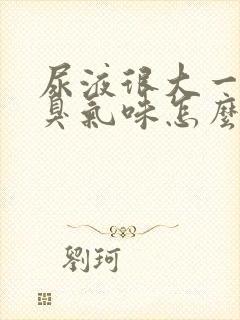 尿液很大一
臭氣味怎麼
劉珂